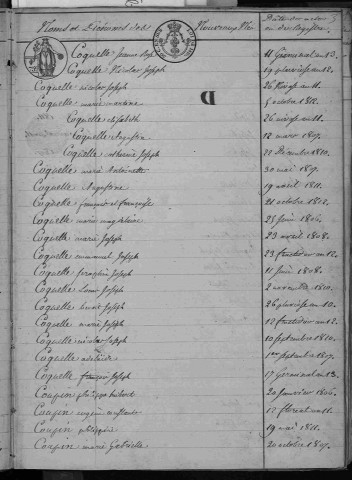 Noms et Prénoms des Nouveaux Nés
Dates des actes
Coquelle Jeanne Rose 11 Germinal an 13.
Coquelle Nicolas Joseph 19 pluviose an 12.
Coquelle Nicolas Joseph 26 niv. an 11.
Coquelle marie martine 5 octobre 1812.
Coquelle Elisabeth 26 nivose an 11.
Coquelle Augustin 12 mars 1807.
Coquelle catherine Joseph 22 Décembre 1810.
Coquelle marie Antoinette 30 mai 1807.
Coquelle Augustine 19 aout 1811.
Coquelle françois 21 octobre 1812.
Coquelle marie magdelaine 25 Juin 1806.
Coquelle marie Joseph 23 avril 1808.
Coquelle emmanuel Joseph 23 fructidor an 12.
Coquelle Joseph 11 Juin 1808.
Coquelle Louis Joseph 2 novembre 1810.
Coquelle Joseph 26 pluviose an 10.
Coquelle marie Joseph 12 fructidor an 12.
Coquelle nicolas Joseph 10 septembre 1810.
Coquelle adelaide 1er septembre 1807.
Coquelle françois Joseph 17 Germinal an 13.
Coupin philippe hubert 20 Janvier 1806.
Coupin 12 floreal an 11.
Coupin philippine 19 mai 1811.
Coupin marie Gabrielle 20 octobre 1807.
D